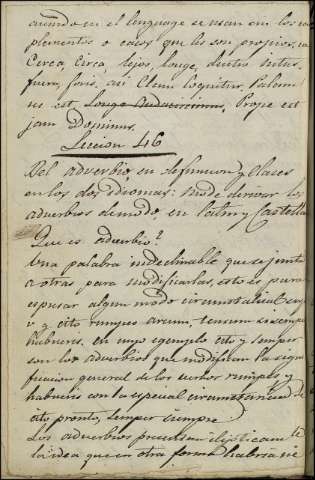 cuando en el lenguage se usan con los com
plementos o casos que les son propios, v.
Cerca, Circa, lejos, longe, dentro intus
fuera, foris, asi Clem
est, longe Prope est
jam Dominus.
Leccion 46
Del adverbio, su definicion, y clases
en los dos idiomas: modo de derivar los
adverbios de modo en Latin y Castella
Que es adverbio?
Una palabra indeclinable que se junta
a otras para modificarlas, esto es para
espresar algun modo circunstancial
v. g. cito rumpes arcum, tensum si semper
habueris. en cuyo egemplo cito y semper
son los adverbios que modifican la signi
ficacion general de los verbos rumpes y
habueris con la especial circunstancia de
cito pronto, semper siempre
Los adverbios presentan elipticamte
la idea que en otra forma habria ne